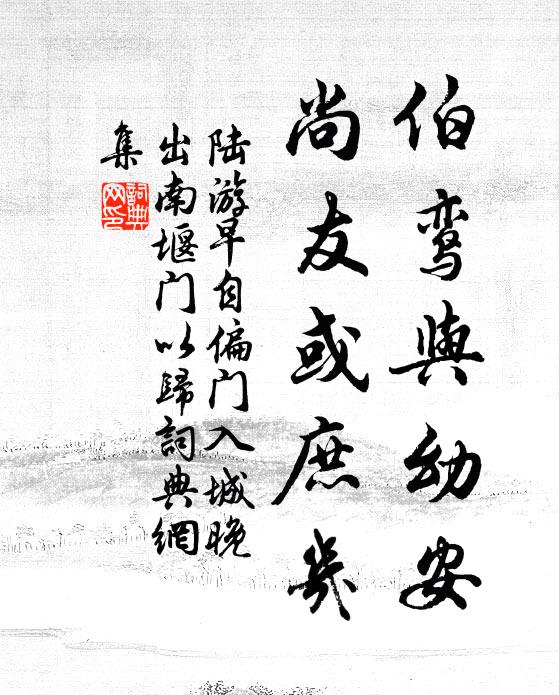 伯鸾與幼安
尚友或庶幾
陆游早自偏门入城晚
出南堰门以歸詞典網
集
詞典
网印